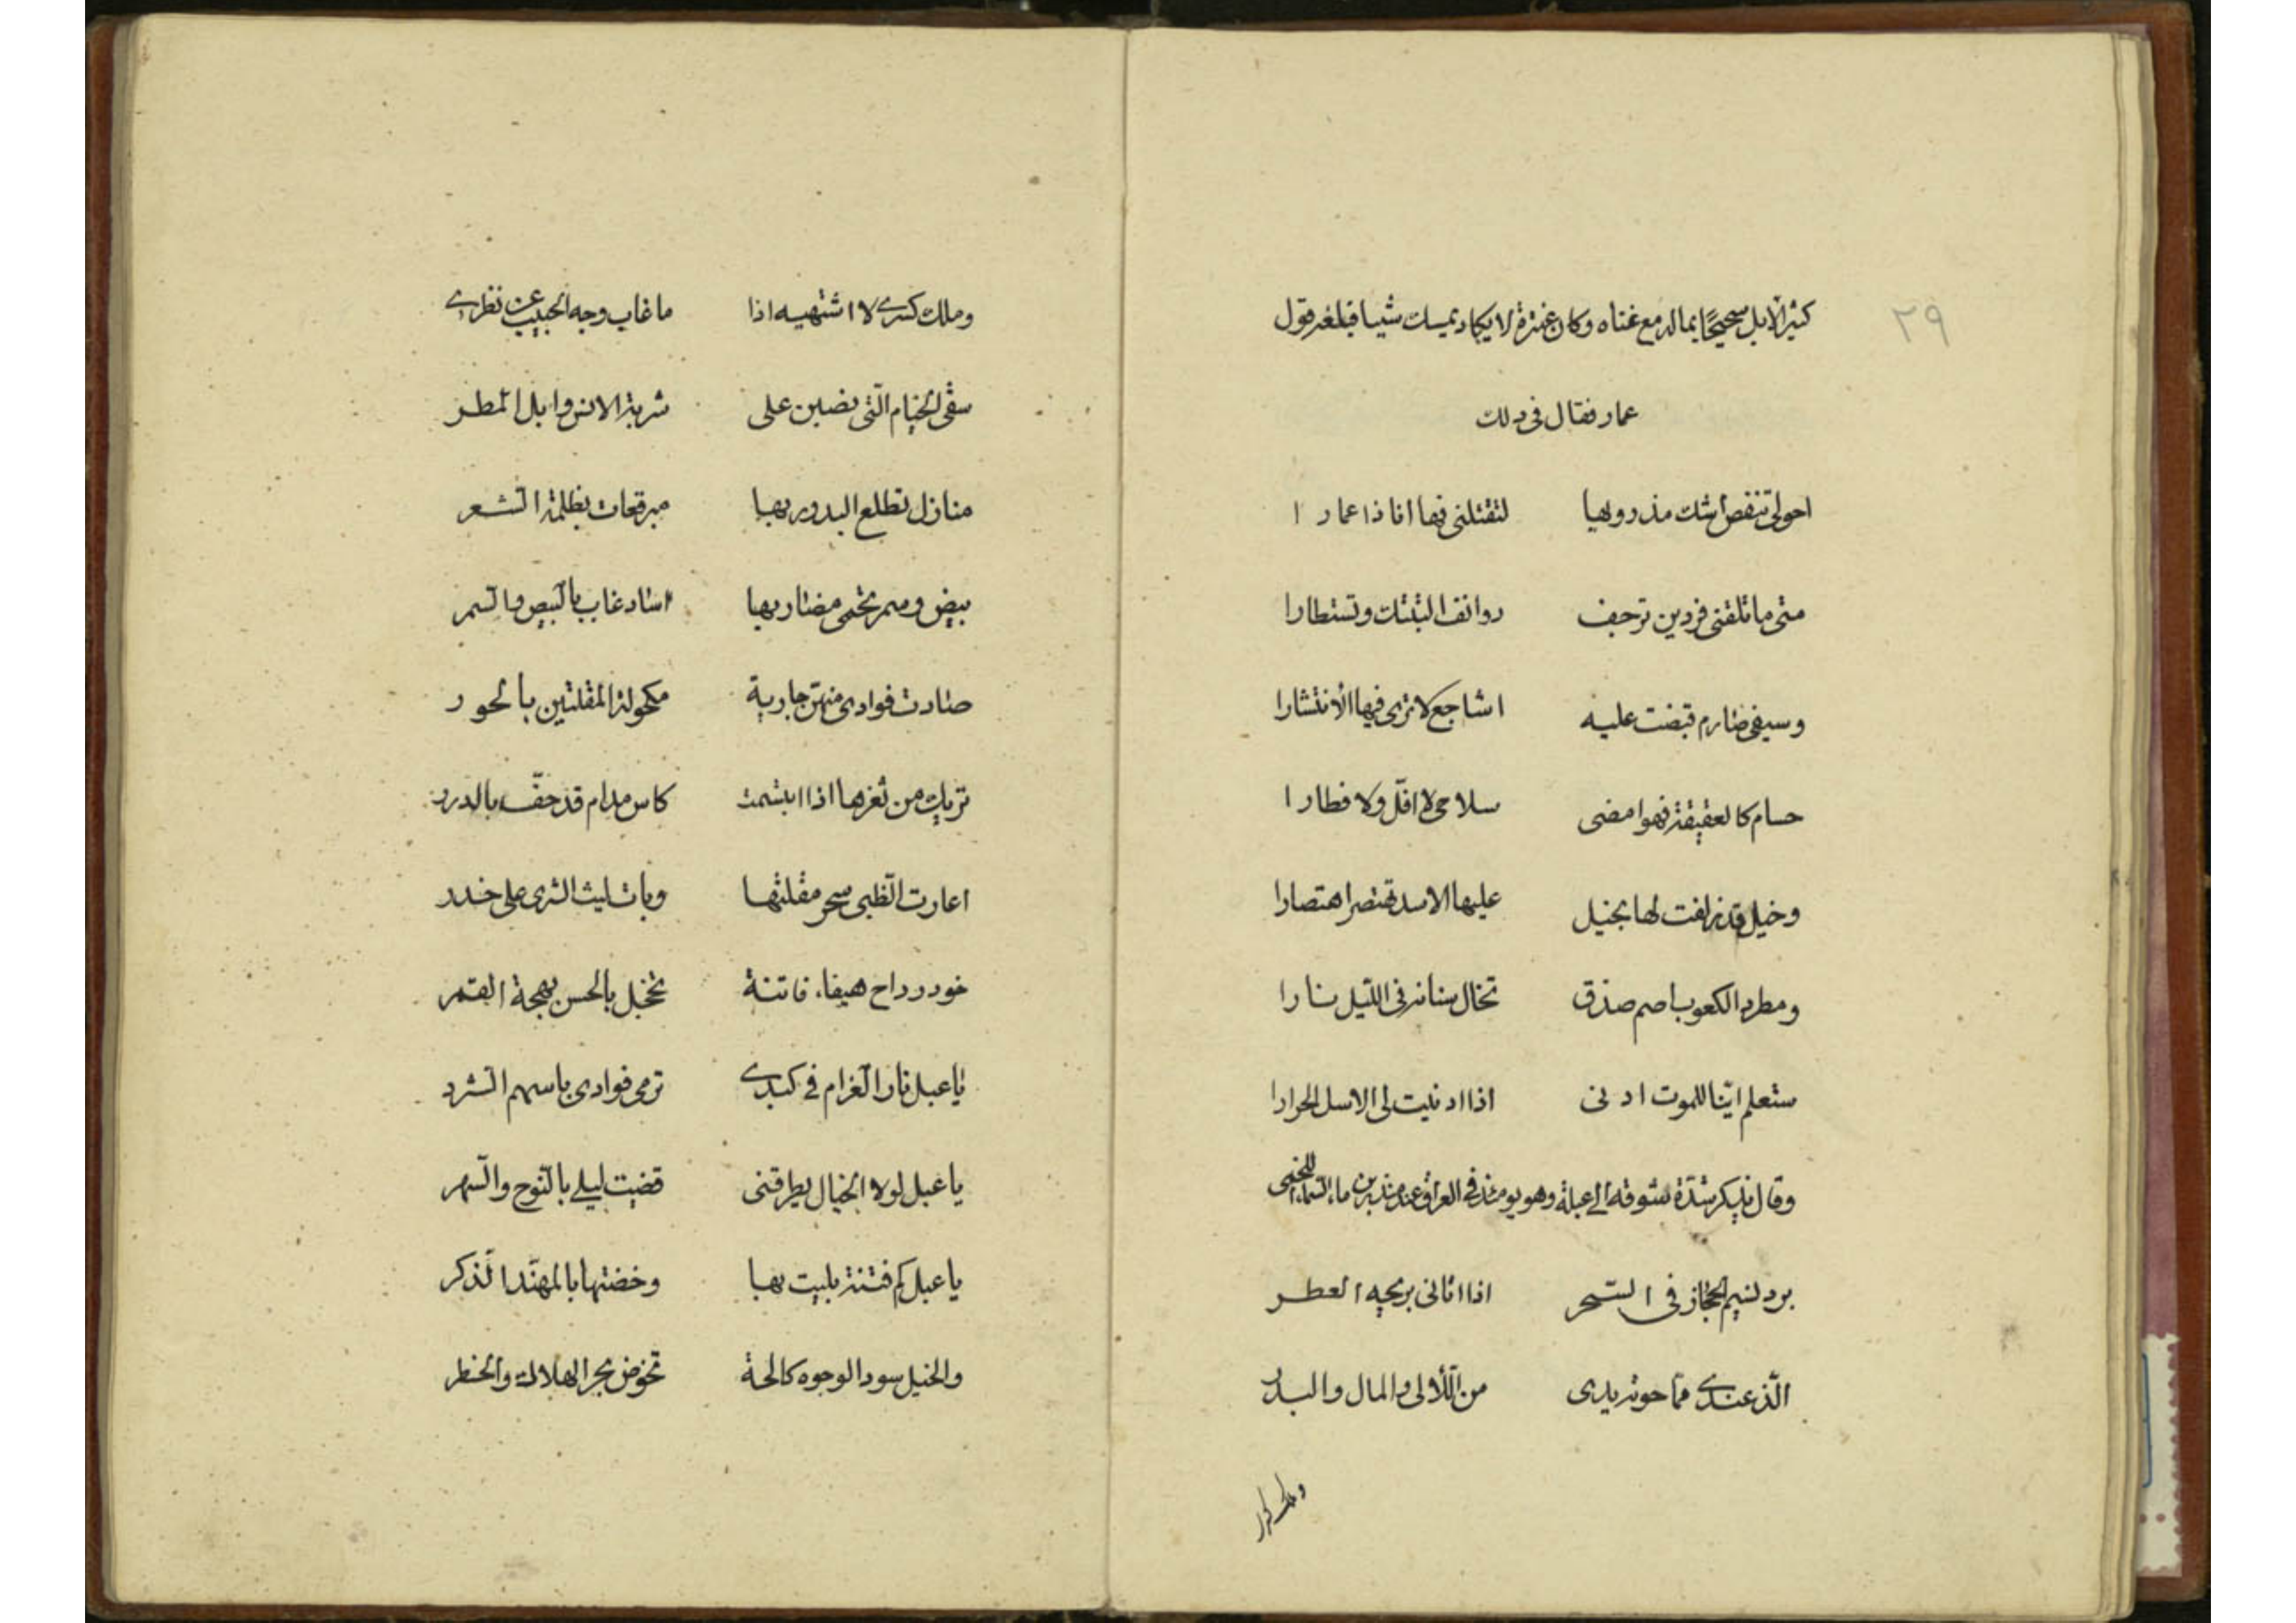 ٢٩
كثير الابل سحيحًا بماله مع غناه وكان عنترة لا يكاد يمسك شيا فبلغه قول
عمار فقال في ذلك
احولى تنفض استك مذرويها لتقتلني فها انا ذا عمارا
متى ما تلقني فردين ترجف روانف اليتيك وتستطارا
وسيفي صارم قبضت عليه اشاجع لا ترى فيها انتشارا
حسام كالعقيقة فهو امضى سلاحي لا افلّ ولا فطارا
وخيل قد زلفت لها بخيل عليها الاسد تهتصر اهتصارا
ومطرد الكعوب اصم صدق تخال سنانه في اللّيل نارا
ستعلم ايّنا للموت ادنى اذا ادنيت لى الاسل الحرارا
وقال يذكر شدّة تشوقه الى عبلة وهو يومئذ في العراق عند منذر بن ماء السّماء اللخمى
برد نسيم الحجاز في السّحر اذا اتاني بريحه العطر
الذ عندي ممّا حوته يدى من اللّالى والمال والبدر
وملك كسرى
وملك كسرى لا اشتهيه اذا ما غاب وجه الحبيب عن نظري
سقى الخيام الّتى نصبن على شربة الانس وابل المطر
منازل تطلع البدور بها مبرقعات بظلمة الشعر
بيض وسمر تحمى مضاربها اساد غاب بالبيض والسّمر
صادت فوادى منهنّ جارية مكحولة المقلتين بالحور
تريك من ثغرها اذا ابتسمت كاس مدام قد حفّ بالدرر
اعارت الظبى سحر مقلتها وبات ليث الشرى على حذر
خود رداح هيفاء فاتنة تخجل بالحسن بهجة القمر
يا عبل نار الغرام في كبدي ترمى فوادى باسهم الشرر
يا عبل لولا الخيال يطرقنى قضيت ليلي بالنّوح والسّهر
يا عبل كم فتنة بليت بها وخضتها بالمهنّد الذكر
والخيل سود الوجوه كالحة تخوض بحر الهلاك والخطر